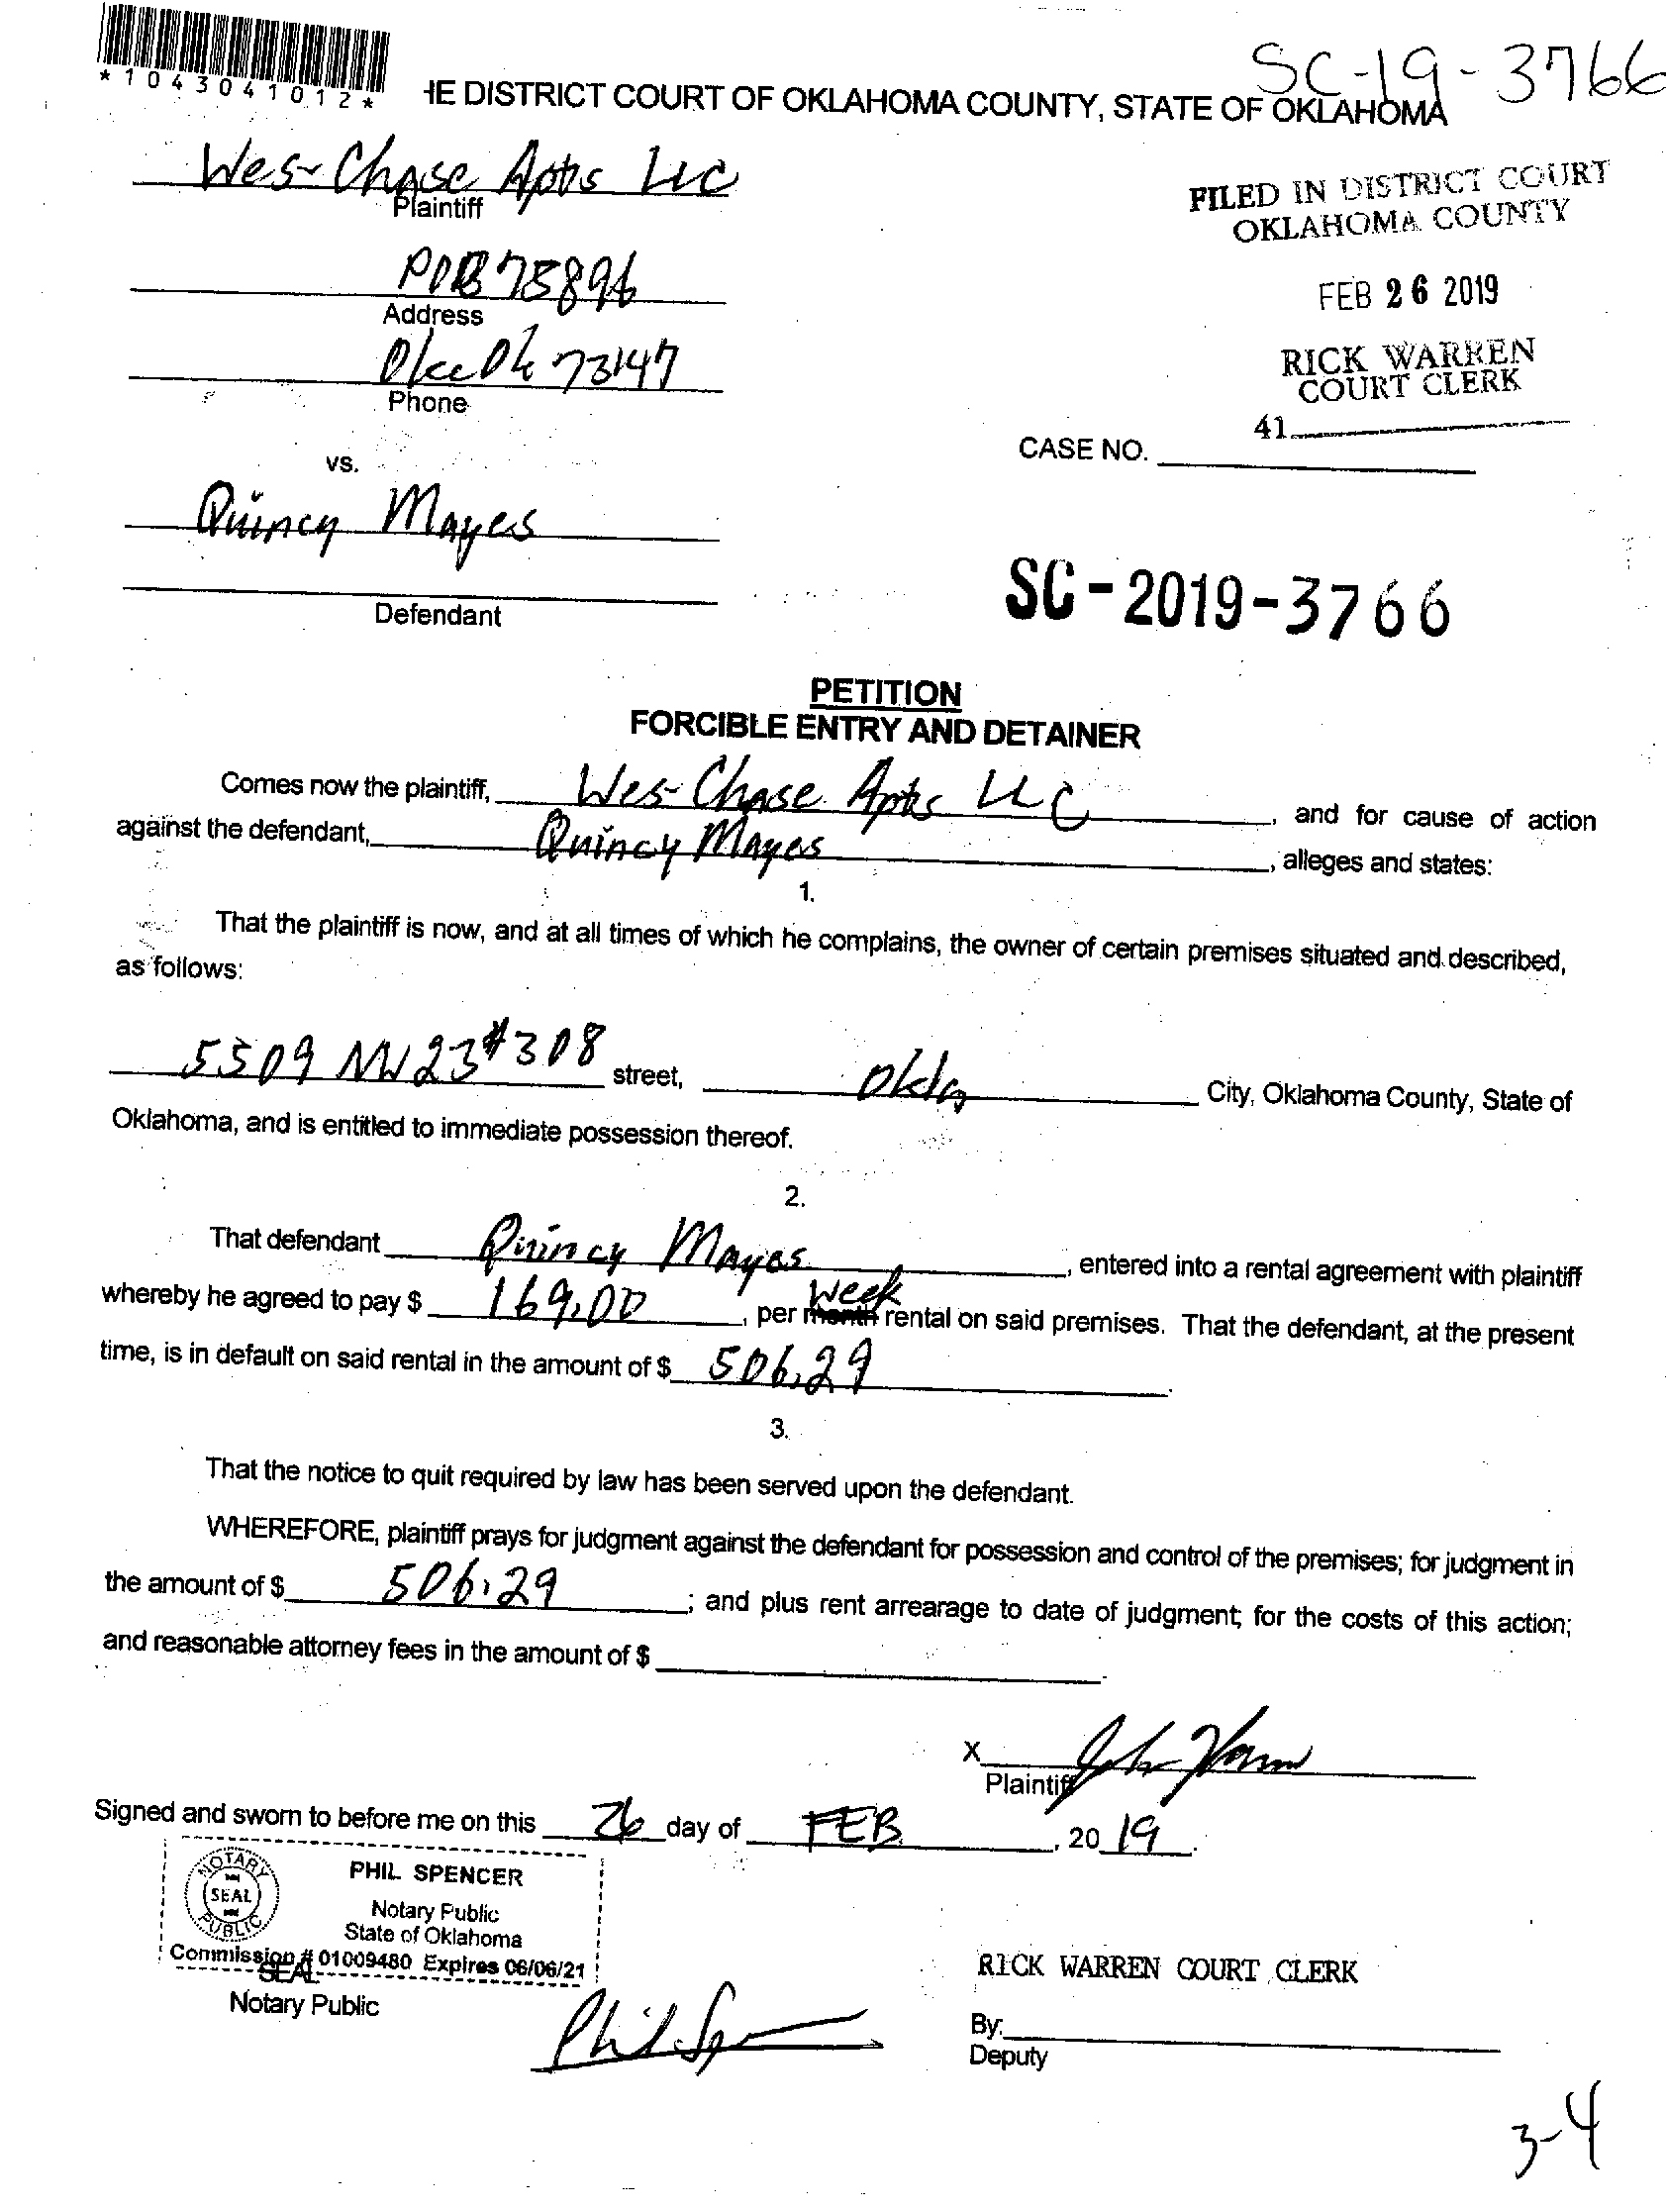 SC-19-3766
*1043041012*
HE DISTRICT COURT OF OKLAHOMA COUNTY, STATE OF OKLAHOMA
Wes-Chase Apts LLC
Plaintiff
FILED IN DISTRICT COURT
OKLAHOMA COUNTY
POB 75896
Address
FEB 26 2019
Okc Ok 73147
Phone
RICK WARREN
COURT CLERK
41
CASE NO.
vs.
Quincy Mayes
Defendant
SC-2019-3766
PETITION
FORCIBLE ENTRY AND DETAINER
Comes now the plaintiff, Wes-Chase Apts LLC, and for cause of action
against the defendant, Quincy Mayes, alleges and states:
1.
That the plaintiff is now, and at all times of which he complains, the owner of certain premises situated and described,
as follows:
5509 NW 23 #308 street, Okla City, Oklahoma County, State of
Oklahoma, and is entitled to immediate possession thereof.
2.
That defendant Quincy Mayes, entered into a rental agreement with plaintiff
week
whereby he agreed to pay $ 169.00, per month rental on said premises. That the defendant, at the present
time, is in default on said rental in the amount of $ 506.29.
3.
That the notice to quit required by law has been served upon the defendant.
WHEREFORE, plaintiff prays for judgment against the defendant for possession and control of the premises; for judgment in
the amount of $ 506.29; and plus rent arrearage to date of judgment; for the costs of this action;
and reasonable attorney fees in the amount of $ .
X
Plaintiff
Signed and sworn to before me on this 26 day of FEB, 20 19.
NOTARY PUBLIC
SEAL
PHIL SPENCER
Notary Public
State of Oklahoma
Commission # 01009480 Expires 06/06/21
SEAL
Notary Public
Phil
RICK WARREN COURT CLERK
By:
Deputy
3-4